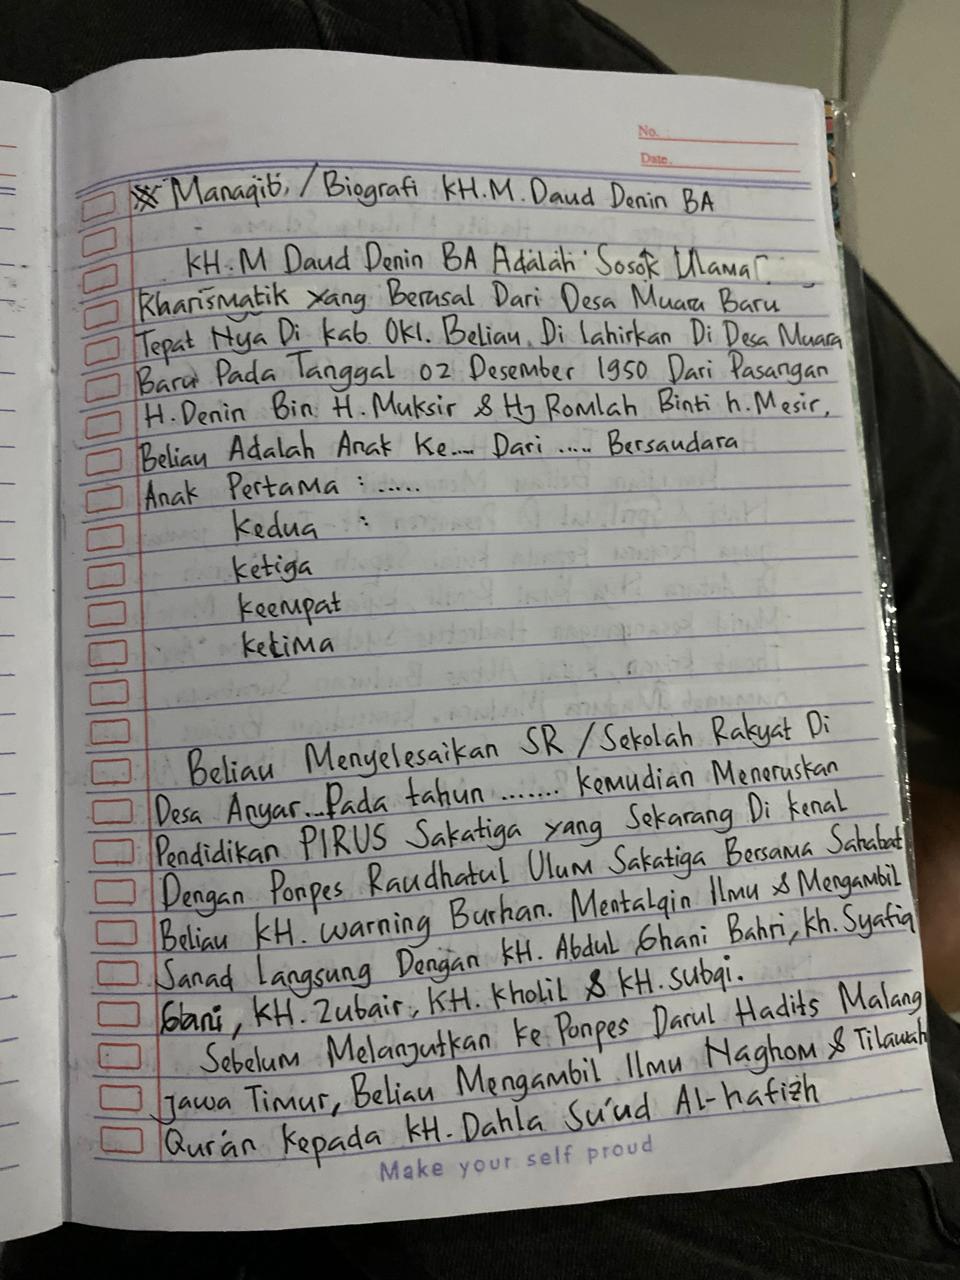 No.
Date.
※ Manaqib, / Biografi KH.M. Daud Denin BA
KH.M Daud Denin BA Adalah Sosok Ulama
Kharismatik yang Berasal Dari Desa Muara Baru
Tepat Nya Di Kab OKI. Beliau Di lahirkan Di Desa Muara
Baru Pada Tanggal 02 Desember 1950 Dari Pasangan
H. Denin Bin H. Muksir & Hj Romlah Binti h. Mesir,
Beliau Adalah Anak Ke.... Dari .... Bersaudara
Anak Pertama : .....
Kedua :
Ketiga
Keempat
Kelima
Beliau Menyelesaikan SR / Sekolah Rakyat Di
Desa Anyar...Pada tahun ....... Kemudian Meneruskan
Pendidikan PIRUS Sakatiga yang Sekarang Di Kenal
Dengan Ponpes Raudhatul Ulum Sakatiga Bersama Sahabat
Beliau KH. Warning Burhan. Mentalqin Ilmu & Mengambil
Sanad Langsung Dengan KH. Abdul Ghani Bahri, Kh. Syafiq
Gani, KH. Zubair, KH. Kholil & KH. Subqi.
Sebelum Melanjutkan Ke Ponpes Darul Hadits Malang
Jawa Timur, Beliau Mengambil Ilmu Naghom & Tilawah
Qur'an Kepada KH. Dahla Su'ud Al-hafizh
Make your self proud